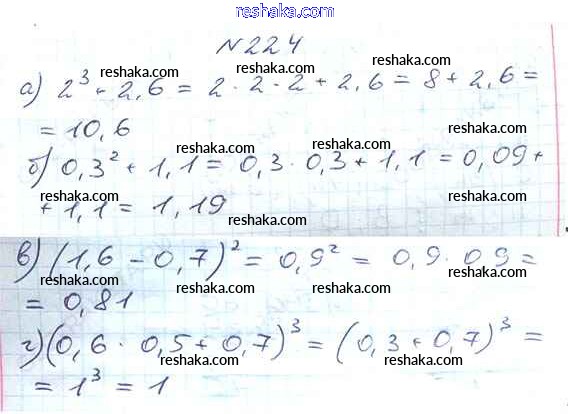 www.reshaka.com
№224
reshaka.com reshaka.com reshaka.com
а) 2³ + 2,6 = 2 · 2 · 2 + 2,6 = 8 + 2,6 =
= 10,6
reshaka.com reshaka.com
б) 0,3² + 1,1 = 0,3 · 0,3 + 1,1 = 0,09 +
+ 1,1 = 1,19
reshaka.com reshaka.com
reshaka.com reshaka.com
в) (1,6 - 0,7)² = 0,9² = 0,9 · 0,9 =
reshaka.com reshaka.com reshaka.com
= 0,81
reshaka.com reshaka.com
г) (0,6 · 0,5 + 0,7)³ = (0,3 + 0,7)³ =
reshaka.com reshaka.com
= 1³ = 1
www.reshaka.com